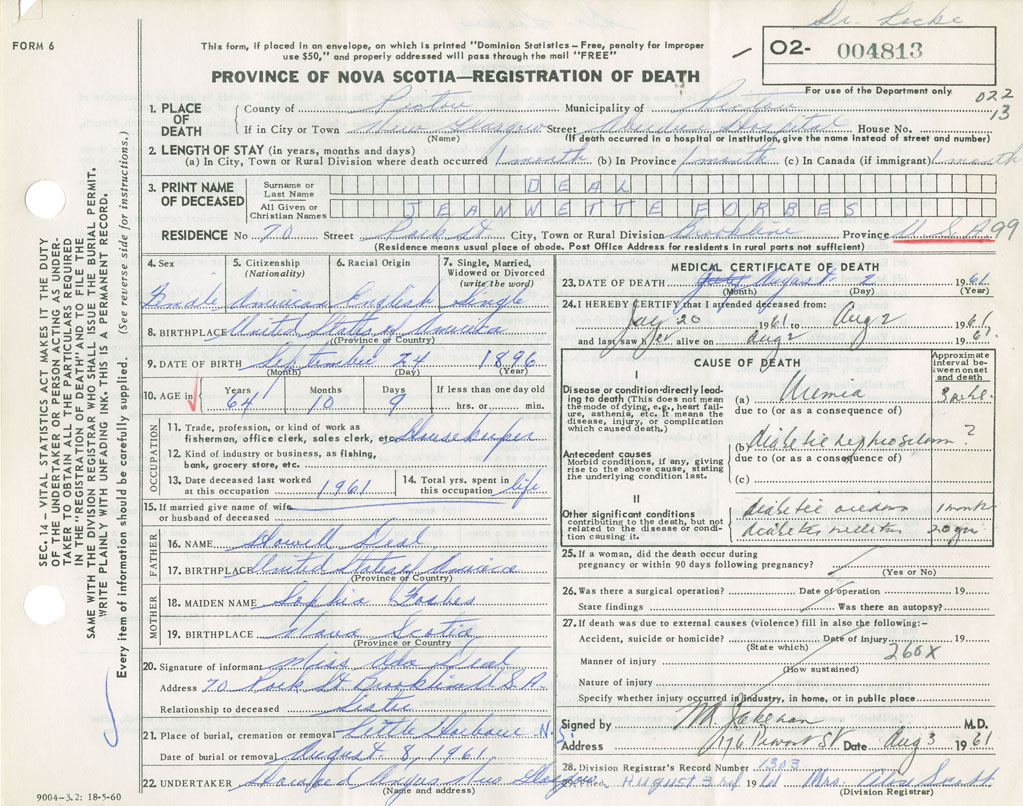 Dr. Locke
FORM 6
This form, if placed in an envelope, on which is printed "Dominion Statistics – Free, penalty for improper
use $50," and properly addressed will pass through the mail "FREE"
02- 004813
PROVINCE OF NOVA SCOTIA—REGISTRATION OF DEATH
For use of the Department only
022
13
1. PLACE OF DEATH
County of Pictou Municipality of Pictou
If in City or Town New Glasgow Street Aberdeen Hospital House No.
(Name) (If death occurred in a hospital or institution, give the name instead of street and number)
2. LENGTH OF STAY (in years, months and days)
(a) In City, Town or Rural Division where death occurred 1 month (b) In Province 1 month (c) In Canada (if immigrant) 1 month
3. PRINT NAME OF DECEASED
Surname or Last Name DEAL
All Given or Christian Names JEANNETTE FORBES
RESIDENCE No 70 Street Park St City, Town or Rural Division Brookline Province U.S.A. 99
(Residence means usual place of abode. Post Office Address for residents in rural parts not sufficient)
4. Sex
Female
5. Citizenship (Nationality)
American
6. Racial Origin
English
7. Single, Married, Widowed or Divorced (write the word)
Single
8. BIRTHPLACE United States of America
(Province or Country)
9. DATE OF BIRTH September 24 1896
(Month) (Day) (Year)
10. AGE in
Years Months Days If less than one day old
64 10 9 hrs. or min.
OCCUPATION
11. Trade, profession, or kind of work as
fisherman, office clerk, sales clerk, etc. Housekeeper
12. Kind of industry or business, as fishing,
bank, grocery store, etc.
13. Date deceased last worked at this occupation 1961
14. Total yrs. spent in this occupation life
15. If married give name of wife
or husband of deceased
FATHER
16. NAME Howell Deal
17. BIRTHPLACE United States of America
(Province or Country)
MOTHER
18. MAIDEN NAME Sophia Forbes
19. BIRTHPLACE Nova Scotia
(Province or Country)
20. Signature of informant Miss Ada Deal
Address 70 Park St Brookline U.S.A.
Relationship to deceased Sister
21. Place of burial, cremation or removal Little Harbour N.S.
Date of burial or removal August 8, 1961
22. UNDERTAKER Angus New Glasgow
(Name and address)
MEDICAL CERTIFICATE OF DEATH
23. DATE OF DEATH August 2 1961
(Month) (Day) (Year)
24. I HEREBY CERTIFY that I attended deceased from:
July 20 1961 to Aug 2 1961
and last saw her alive on Aug 2 1961
CAUSE OF DEATH
Approximate interval between onset and death
I
Disease or condition directly leading to death (This does not mean the mode of dying, e.g., heart failure, asthenia, etc. It means the disease, injury, or complication which caused death.)
(a) Uremia
due to (or as a consequence of)
Antecedent causes
Morbid conditions, if any, giving rise to the above cause, stating the underlying condition last.
(b) diabetic ?
due to (or as a consequence of)
(c)
II
Other significant conditions contributing to the death, but not related to the disease or condition causing it.
diabetic 1 month
diabetes mellitus 20 yrs
25. If a woman, did the death occur during
pregnancy or within 90 days following pregnancy?
(Yes or No)
26. Was there a surgical operation? Date of operation 19
State findings Was there an autopsy?
27. If death was due to external causes (violence) fill in also the following:-
Accident, suicide or homicide? Date of injury 19
(State which)
260X
Manner of injury
(How sustained)
Nature of injury
Specify whether injury occurred in industry, in home, or in public place
Signed by M.D.
Address 176 Provost St Date Aug 3 1961
28. Division Registrar's Record Number 1303
Filed August 3rd 1961 Mrs. Scott
(Division Registrar)
SEC. 14 – VITAL STATISTICS ACT MAKES IT THE DUTY
OF THE UNDERTAKER OR PERSON ACTING AS UNDER-
TAKER TO OBTAIN ALL THE PARTICULARS REQUIRED
IN THE "REGISTRATION OF DEATH" AND TO FILE THE
SAME WITH THE DIVISION REGISTRAR WHO SHALL ISSUE THE BURIAL PERMIT.
WRITE PLAINLY WITH UNFADING INK. THIS IS A PERMANENT RECORD.
Every item of information should be carefully supplied. (See reverse side for instructions.)
9004-3.2: 18-5-60